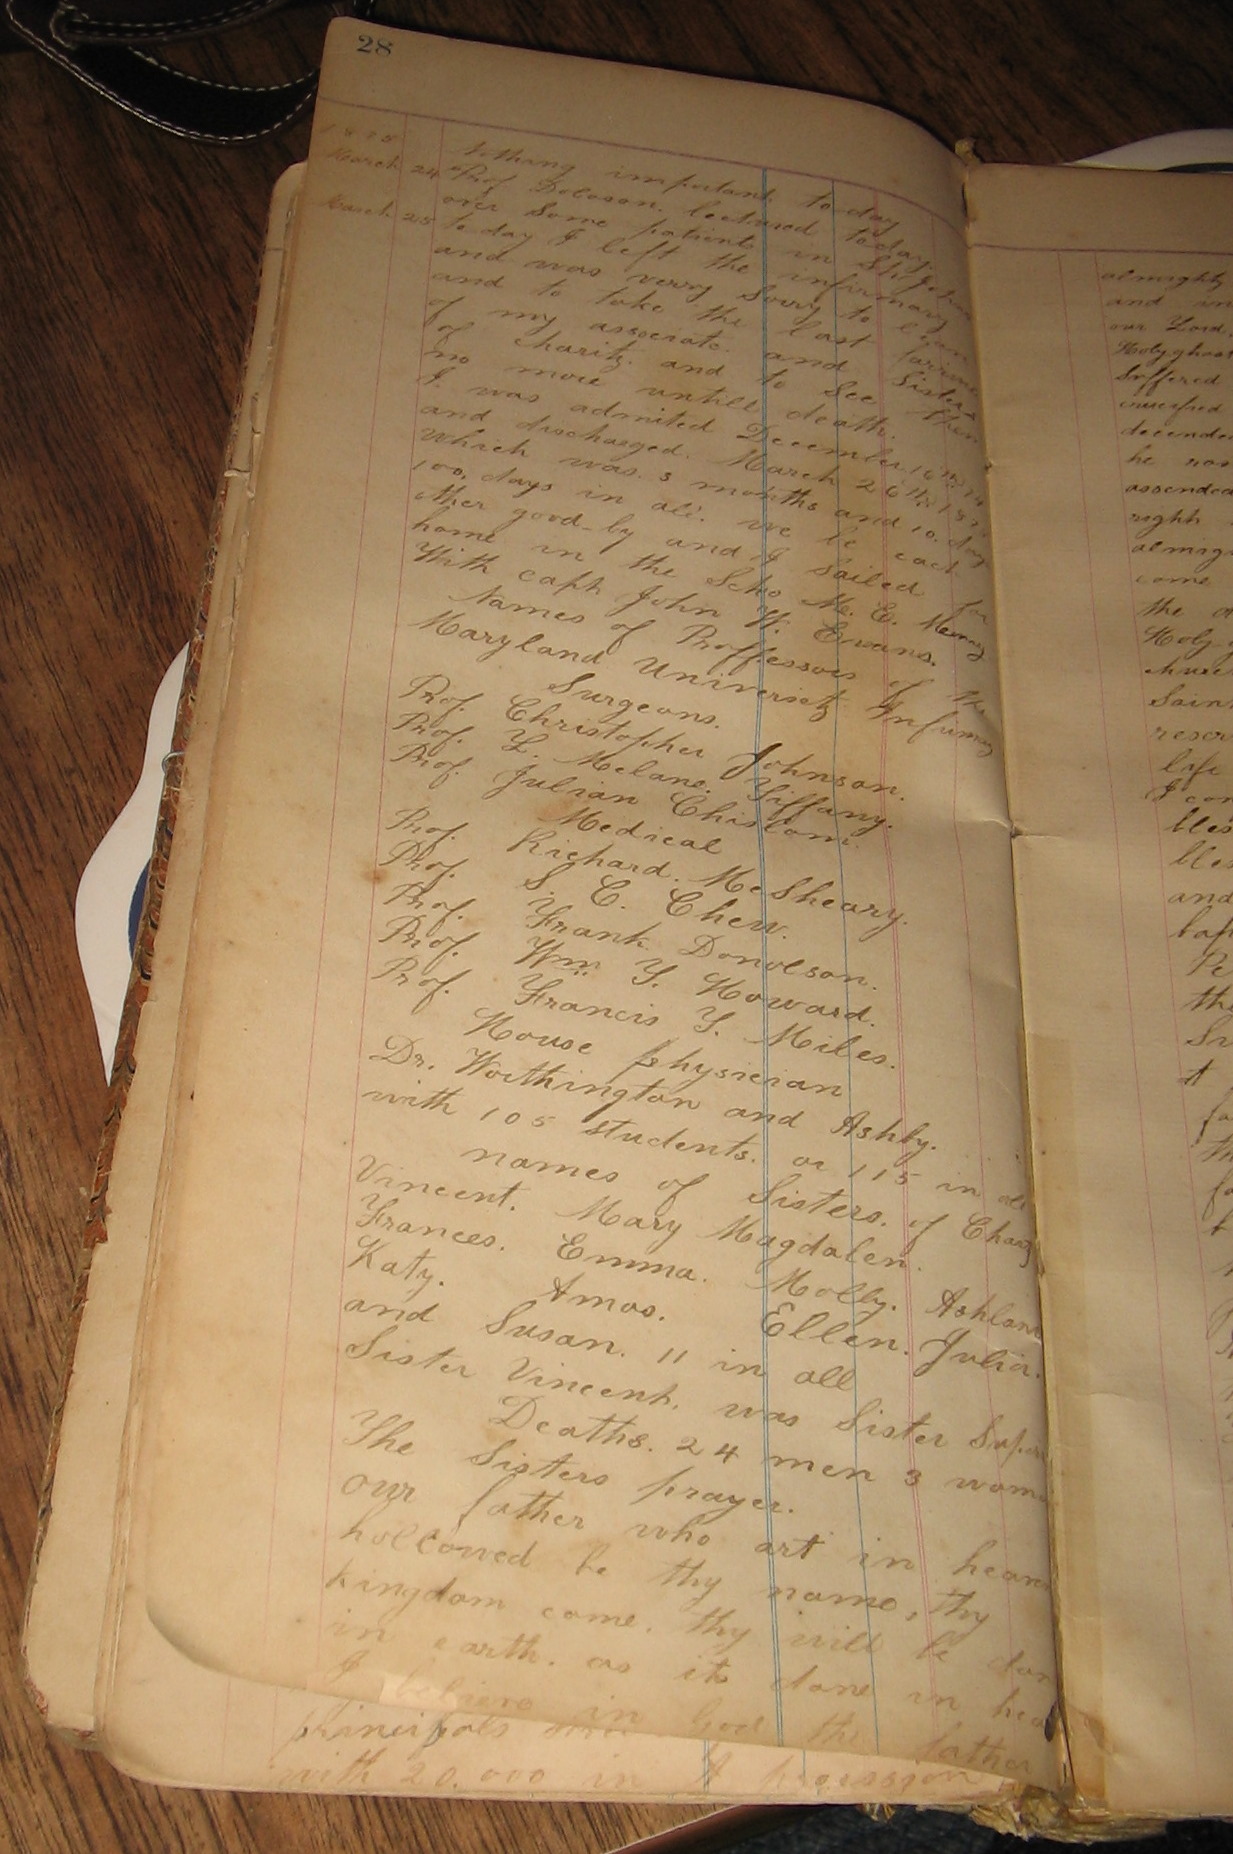 28
1875
March 24 Nothing important to day
Prof. Doloson. lectured today.
over some patients in St John
March 25 to day I left the infirmary
and was verry sorry to leave
and to take the last farwell
of my associate. and Sisters
of charity. and to see them
no more untill death.
I was admited December 16th
and discharged. March 26th 187
which was. 3 months and 10. day
100. days in all. we be each
other good-by and I sailed for
home in the Scho M. E. Henry
With capt John W. Evans.
Names of Proffessors of the
Maryland University Infirmary
Surgeons.
Prof. Christopher Johnson.
Prof. L. Mclane. Tiffany.
Prof. Julian Chislom.
Medical
Prof. Richard. McSheary.
Prof. S. C. Chew.
Prof. Frank. Donolson.
Prof. Wm. T. Howard.
Prof. Francis T. Miles.
House physician
Dr. Worthington and Ashby.
with 105 students. or 115 in all
names of Sisters. of Charity
Vincent. Mary Magdalen.
Frances. Emma. Molly. Ashland
Katy. Amos. Ellen. Julia.
and Susan. 11 in all
Sister Vincent. was Sister Super
Deaths. 24 men 3 wom
The Sisters prayer.
our father who art in heaven
hollowed be thy name, thy
kingdom come. thy will be don
in earth. as its done in hea
I believe in God the father
principals
with 20.000 in A procession
almighty
and in
our Lord.
Holyghost
Suffered
crucified
decended
he ros
assended
right
almig
come
the
Holy
Saint
resur
life
I con
bles
bles
and
bap
Pe
the
it